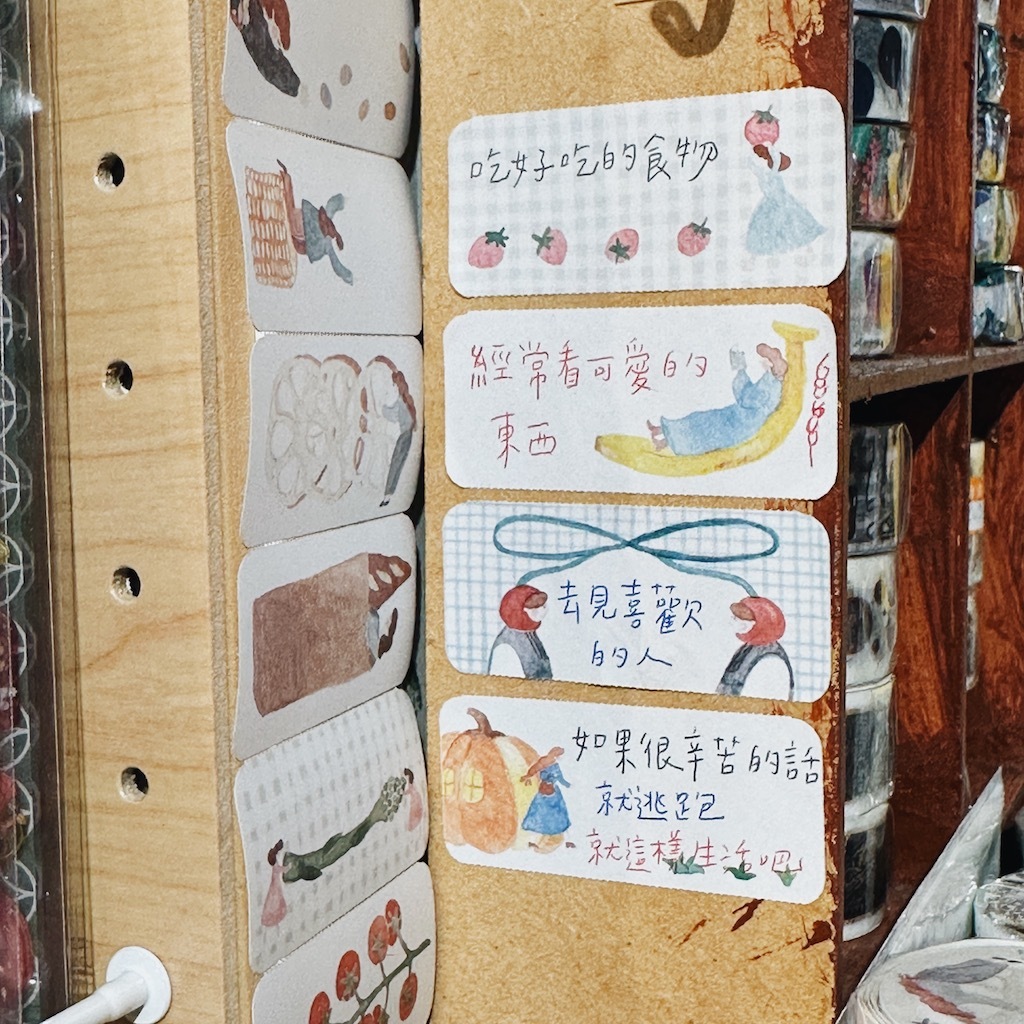 吃好吃的食物
經常看可愛的
東西
去見喜歡
的人
如果很辛苦的話
就逃跑
就這樣生活吧